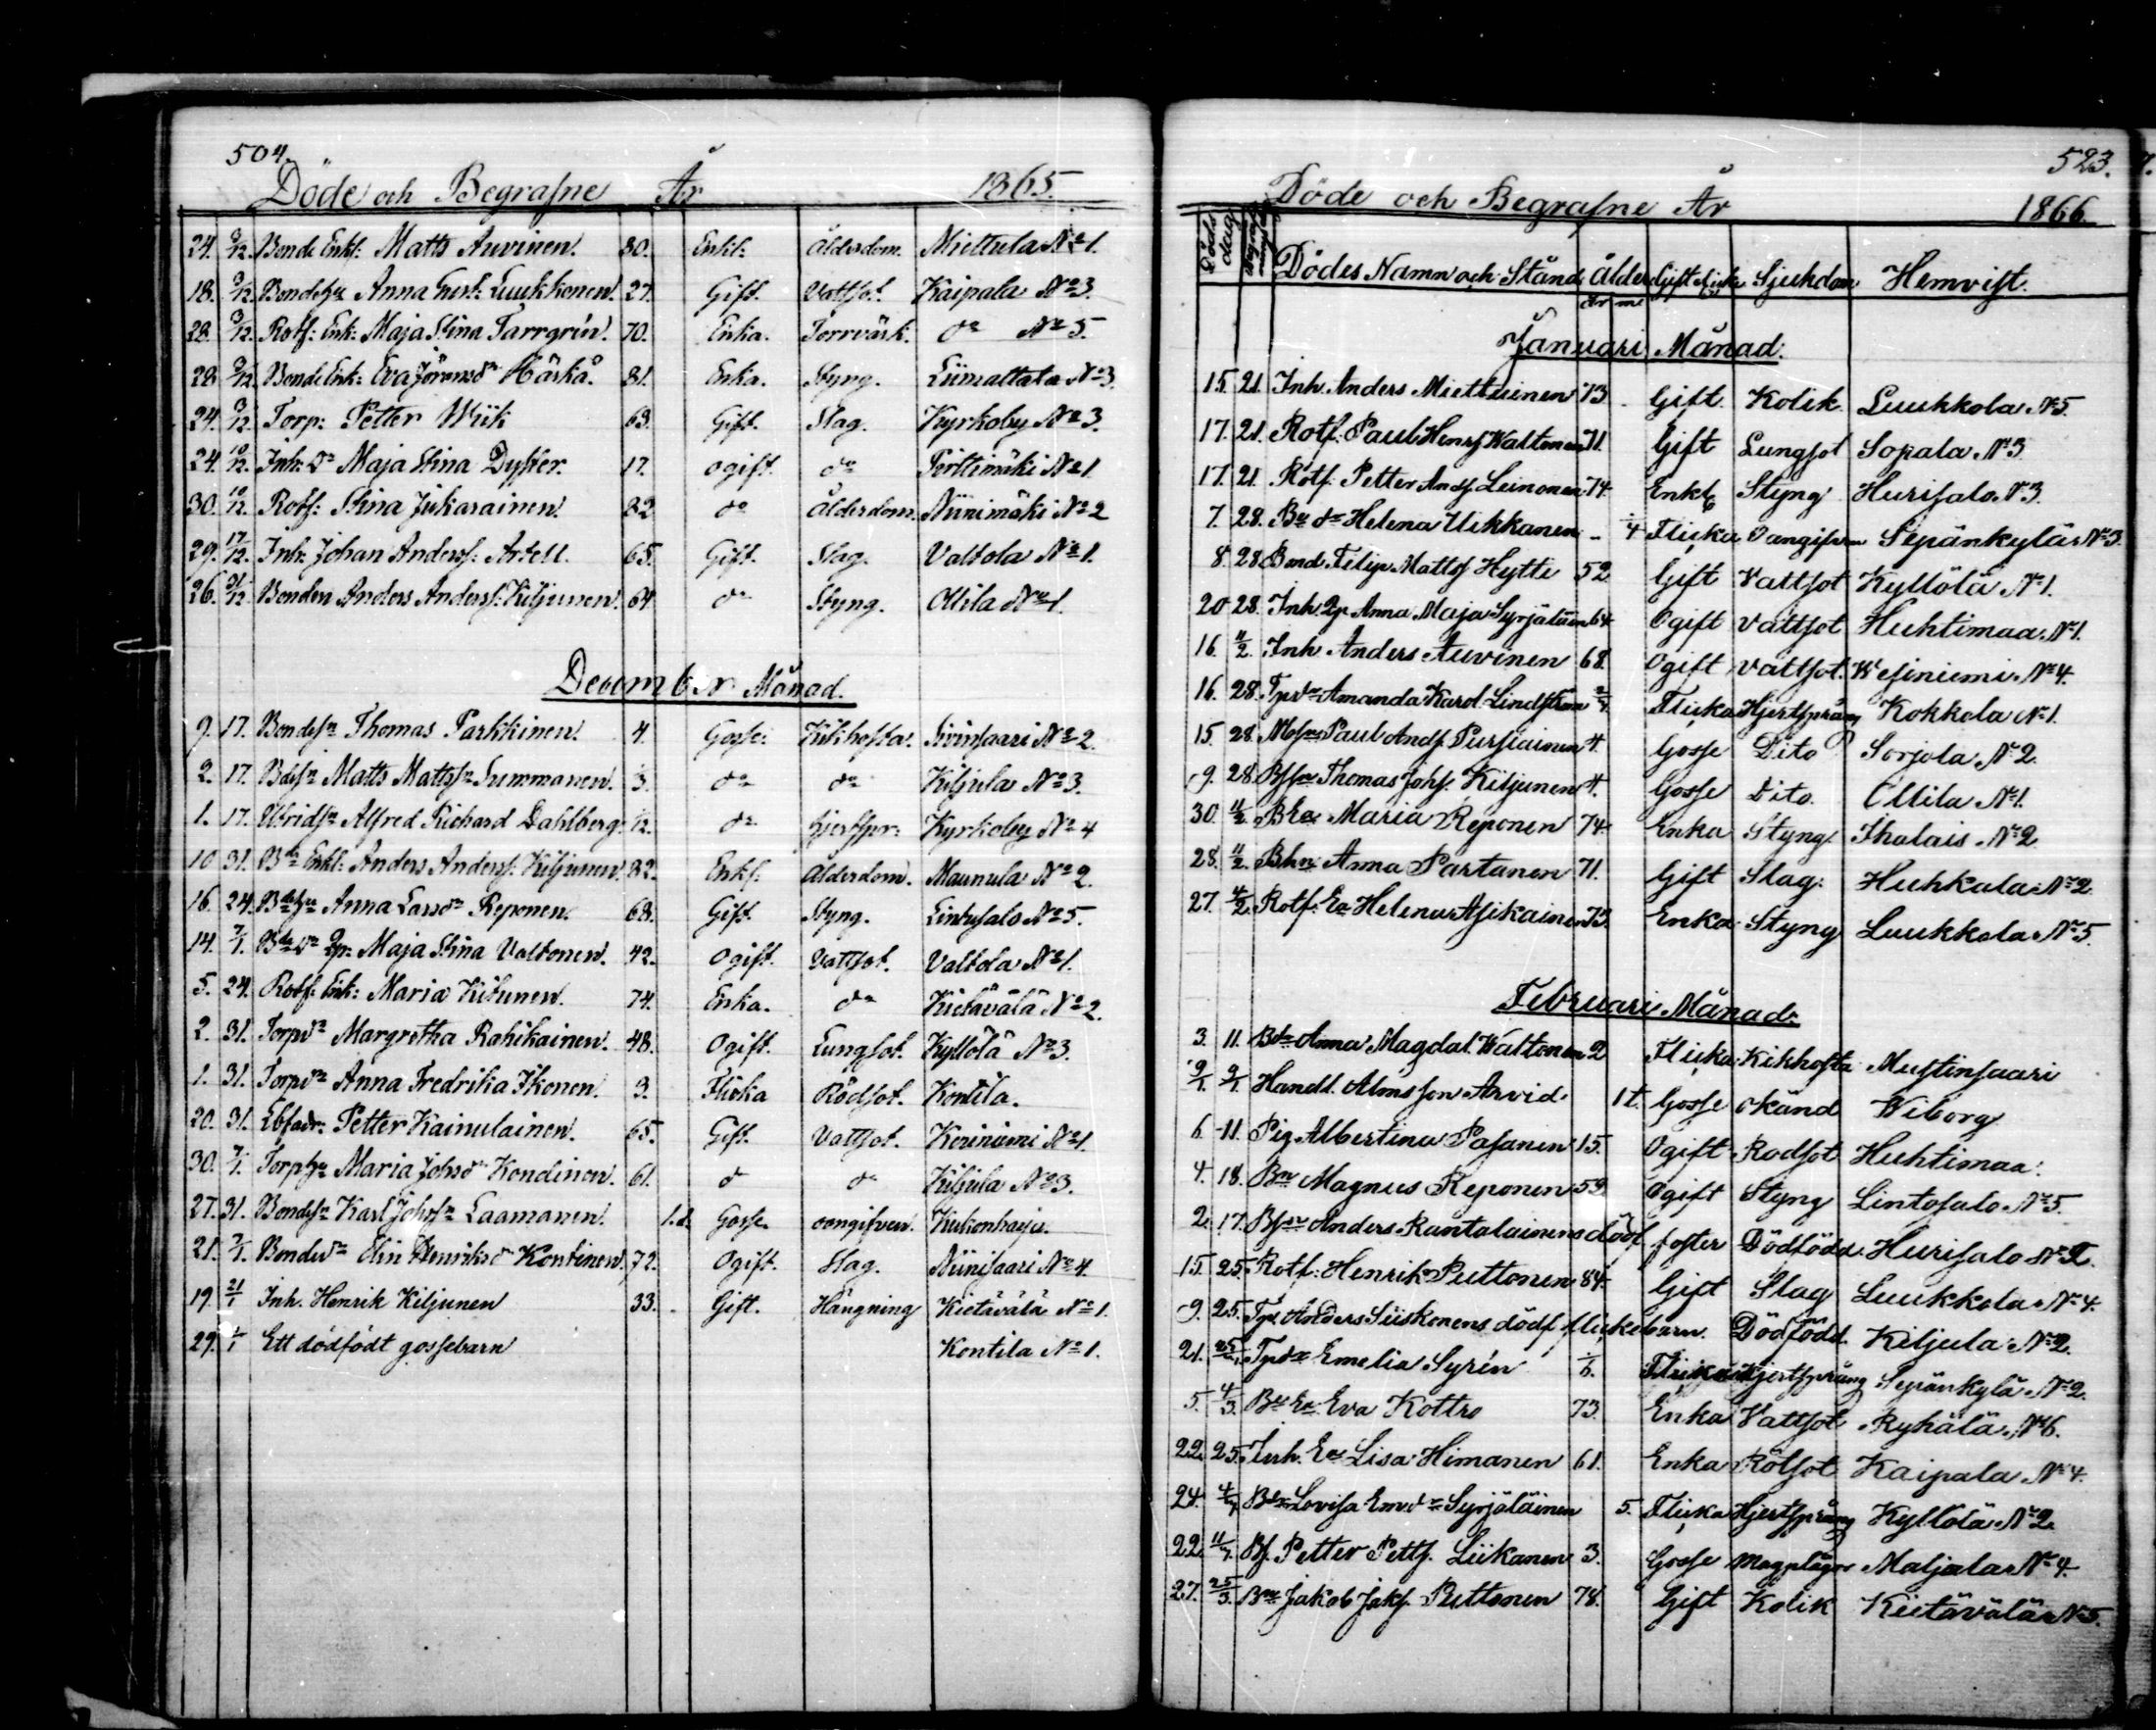 504.
Döde och Begrafne År 1865.
24. 3/12. Bonde Enkl: Matts Auvinen. 80. Enkl: Ålderdom. Miettula No 1.
18. 3/12. Bondehu Anna Christ: Luukkonen. 27. Gift. Vattsot. Kaipala No 3.
28. 3/12. Rotf: Enk: Maja Stina Tarrgrén. 70. Enka. Torrvärk. do No 5.
28. 3/12. Bonde Enk: Eva Jöransdr Härkä. 81. Enka. Styng. Liimattala No 3.
24. 3/12. Torp: Petter Wiik 63. Gift. Slag. Kyrkoby No 3.
24. 10/12. Inh: dr Maja Stina Dyster. 17. ogift. do Pirttimäki No 1
30. 10/12. Rotf: Stina Jukarainen. 82 do Ålderdom. Niinimäki No 2
29. 17/12. Inh: Johan Anderss: Artell. 65. Gift. Slag. Valtola No 1.
26. 31/12. Bonden Anders Anderss: Kiljunen. 64 do Styng. Ollila No 1.
December Månad.
9. 17. Bondesn Thomas Parkkinen. 4. Gosse: Kikhosta. Kivinsaari No 2.
2. 17. Bdesn Matts Mattssn Summanen. 3. do do Kiljula No 3.
1. 17. Alfred Richard Dahlberg. do hjertspr: Kyrkoby No 4
10 31. Bde Enkl: Anders Anderss: Kiljunen. 82. Enkl: Ålderdom. Maunula No 2.
16. 24. Bdehu Anna Larsdr Reponen. 68. Gift. Styng. Lintusalo No 5.
14. 7/1. Bdedr Maja Stina Valtonen. 42. Ogift. Vattsot. Valtola No 1.
5. 24. Rotf: Enk: Maria Kitunen. 74. Enka. do Kietävälä No 2.
2. 31. Torpdr Margretha Rahikainen. 48. Ogift. Lungsot. Kyllölä No 3.
1. 31. Torpdr Anna Fredrika Ikonen. 3. Flicka Rödsot. Kontila.
20. 31. Petter Kainulainen. 65. Gift. Vattsot. No 1.
30. 7/1. Torphu Maria Johsdr Kondinen. 61. do do Kiljula No 3.
27. 31. Bondesn Karl Johssn Laamanen. 1.d. Gosse. oangifven. Kukonharju.
21. 7/1. Bondedr Elin Henriksdr Kontinen. 72. Ogift. Slag. Niinisaari No 4.
19. 21/1 Inh. Henrik Kiljunen 33. Gift. Hängning Kietävälä No 1.
29. 1/1 Ett dödfödt gossebarn Kontila No 1.
523.
Döde och Begrafne År 1866
Döds dag Dödes Namn och Stånd Ålder år m Gift Sjukdom Hemvist.
Januari Månad.
15. 21. Inh. Anders Miettinen 73 Gift Kolik Luukkola No 5.
17. 21. Rotf: Paul Henrs Waltonen 71. Gift Lungsot Sopala No 3
17. 21. Rotf: Petter Ands Leinonen 74. Enkl Styng Hurisalo No 3.
7. 28. Bdr Helena Ukkanen 1/4 Flicka Oangifven Sepänkylä No 3.
8. 28. Bond Filip Matts Hytti 52 Gift Vattsot Kyllölä No 1.
20 28. Inh. Anna Maja Syrjäläinen 64 Ogift Vattsot Huhtimaa No 1.
16. 4/2. Inh Anders Auvinen 68. Ogift Vattsot. Wesiniemi No 4.
16. 28. Tpdr Amanda Karol. Lindström Flicka Hjertsprång Kokkola No 1.
15. 28. Paul Ands. Pursiainen 4. Gosse Dito Sorjola No 2.
9. 28. Thomas Johs. Kiljunen 4. Gosse Dito. Ollila No 1.
30. 4/2. B Ea Maria Reponen 74. Enka Styng Ihalais No 2
28. 4/2. Bhu Anna Partanen 71. Gift Slag. Huhkala No 2
27. 4/2. Rotf. Ea Helena Asikainen 73. Enka Styng Luukkola No 5.
Februari Månad.
3. 11. Bdr Anna Magdal. Waltonen 2 Flicka Kikhosta Mustinsaari
Handl. Almsson Arvid. 1 t. Gosse Okänd Wiborg
6. 11. Pig Albertina Pasanen 15. Ogift Rödsot Huhtimaa.
4. 18. Bn Magnus Reponen 59. Ogift Styng Lintosalo No 5.
2. 17. Anders Rantalainens dödf foster Dödfödd Hurisalo No 2.
15. 25. Rotf: Henrik Puttonen 84. Gift Slag Luukkola No 4.
9. 25. Tp. Anders Siiskonens dödf. flickebarn. Dödfödd Kiljula No 2.
21. Tpdr Emelia Syrén 1/6. Flicka Hjertsprång Sepänkylä No 2.
5. 4/3. B Ea Eva Kottro 73. Enka Vattsot Ryhälä No 6.
22. 25. Inh. Ea Lisa Himanen 61. Enka Rötsot Kaipala No 4.
24. Bdr Lovisa Emdr Syrjäläinen 5. Flicka Hjertsprång Kyllölä No 2.
22. Bs. Petter Petts. Liikanen 3. Gosse Magplågor Maljala No 4.
27. 25/3. Bn Jakob Jaks. Puttonen 78. Gift Kolik Kietävälä No 5.